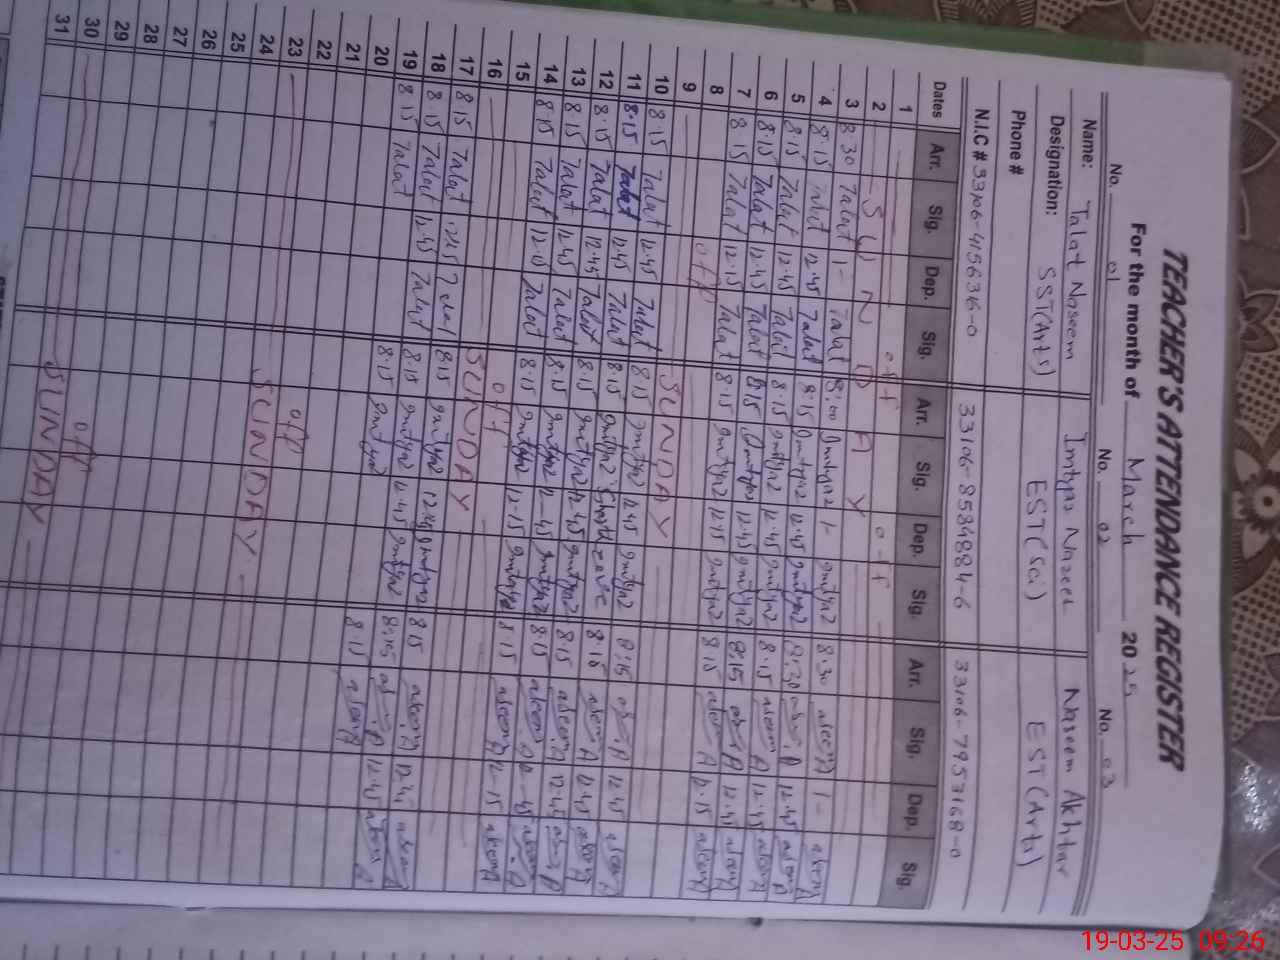 TEACHER'S ATTENDANCE REGISTER
For the month of March 2025
No. 01 No. 02 No. 03
Name: Talat Naseem Imtyaz Nazeer Naseem Akhtar
Designation: SST(Arts) EST(Sci) EST(Arts)
Phone #
N.I.C # 33106-415636-0 33106-8584884-6 33106-7957168-0
Dates Arr. Sig. Dep. Sig. Arr. Sig. Dep. Sig. Arr. Sig. Dep. Sig.
1 off off
2 SUNDAY
3 8.30 Talat 1- Talat 8:00 Imtyaz 1- Imtyaz 8.30 1-
4 8.15 Talat 12.45 Talat 8.15 Imtyaz 12.45 Imtyaz 8:30 12.45
5 8.15 Talat 12.45 Talat 8.15 Imtyaz 12.45 Imtyaz 8.15 12.45
6 8.15 Talat 12.45 Talat 8.15 Imtyaz 12.45 Imtyaz 8:15 12.45
7 8.15 Talat 12.15 Talat 8.15 Imtyaz 12.15 Imtyaz 8.15 12.15
8 off
9 SUNDAY
10 8.15 Talat 12.45 Talat 8.15 Imtyaz 12.45 Imtyaz 8:15 12.45
11 8.15 Talat 12.45 Talat 8.15 Imtyaz 8.15 12.45
12 8.15 Talat 12.45 Talat 8.15 Imtyaz 12.45 Imtyaz 8.15 12.45
13 8.15 Talat 12.45 Talat 8.15 Imtyaz 12-45 Imtyaz 8.15 12-45
14 8.15 Talat Talat 8.15 Imtyaz 12-15 Imtyaz 8.15 12-15
15 off
16 SUNDAY
17 8.15 Talat 8.15 Imtyaz 12.45 Imtyaz 8.15 12.45
18 8.15 Talat 12.45 Talat 8.15 Imtyaz 12.45 Imtyaz 8:15
19 8.15 Talat 8.15 Imtyaz 12.45
20
21
22 off
23 SUNDAY
24
25
26
27
28
29 off
30 SUNDAY
31
19-03-25 09:26